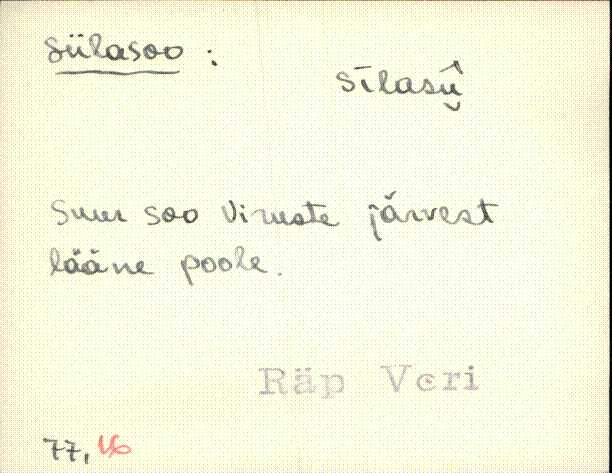 Siilasoo :
sīlasū̬̂
Suur soo Viruste järvest
lääne poole.
Räp Veri
77, 16